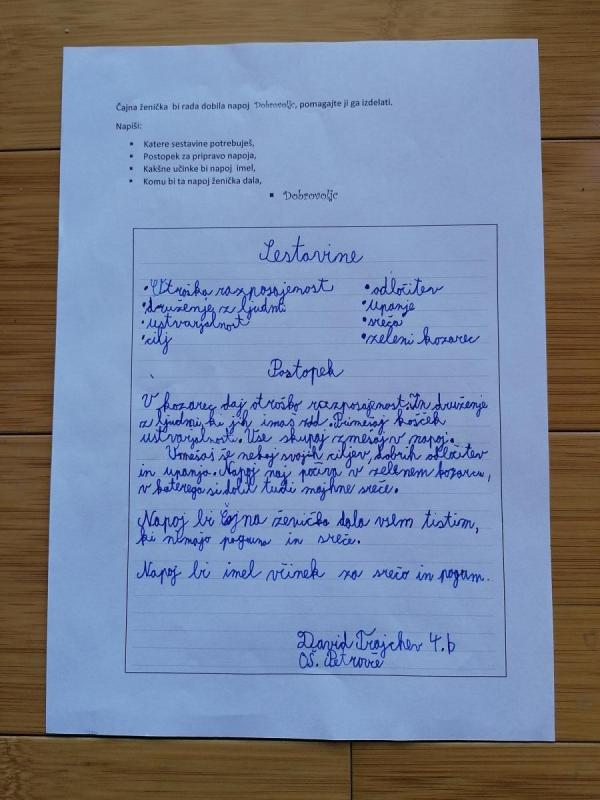 Čajna ženička bi rada dobila napoj Dobrovoljc, pomagajte ji ga izdelati.
Napiši:
▪ Katere sestavine potrebuješ,
▪ Postopek za pripravo napoja,
▪ Kakšne učinke bi napoj imel,
▪ Komu bi ta napoj ženička dala,
▪ Dobrovoljc
Sestavine
•Otroška razposajenost •odločitev
•druženje z ljudmi •upanje
•ustvarjalnost •sreča
•cilj •zeleni kozarec
Postopek
V kozarec daj otroško razposajenost in druženje
z ljudmi, ki jih imaš rad. Primešaj košček
ustvarjalnosti. Vse skupaj zmešaj v napoj.
Vmešaj še nekaj svojih ciljev, dobrih odločitev
in upanja. Napoj naj počiva v zelenem kozarcu,
v katerega si dolil tudi majhne sreče.
Napoj bi Čajna ženička dala vsem tistim,
ki nimajo poguma in sreče.
Napoj bi imel včinek za srečo in pogum.
David Trajchev 4.b
OŠ. Petrovče